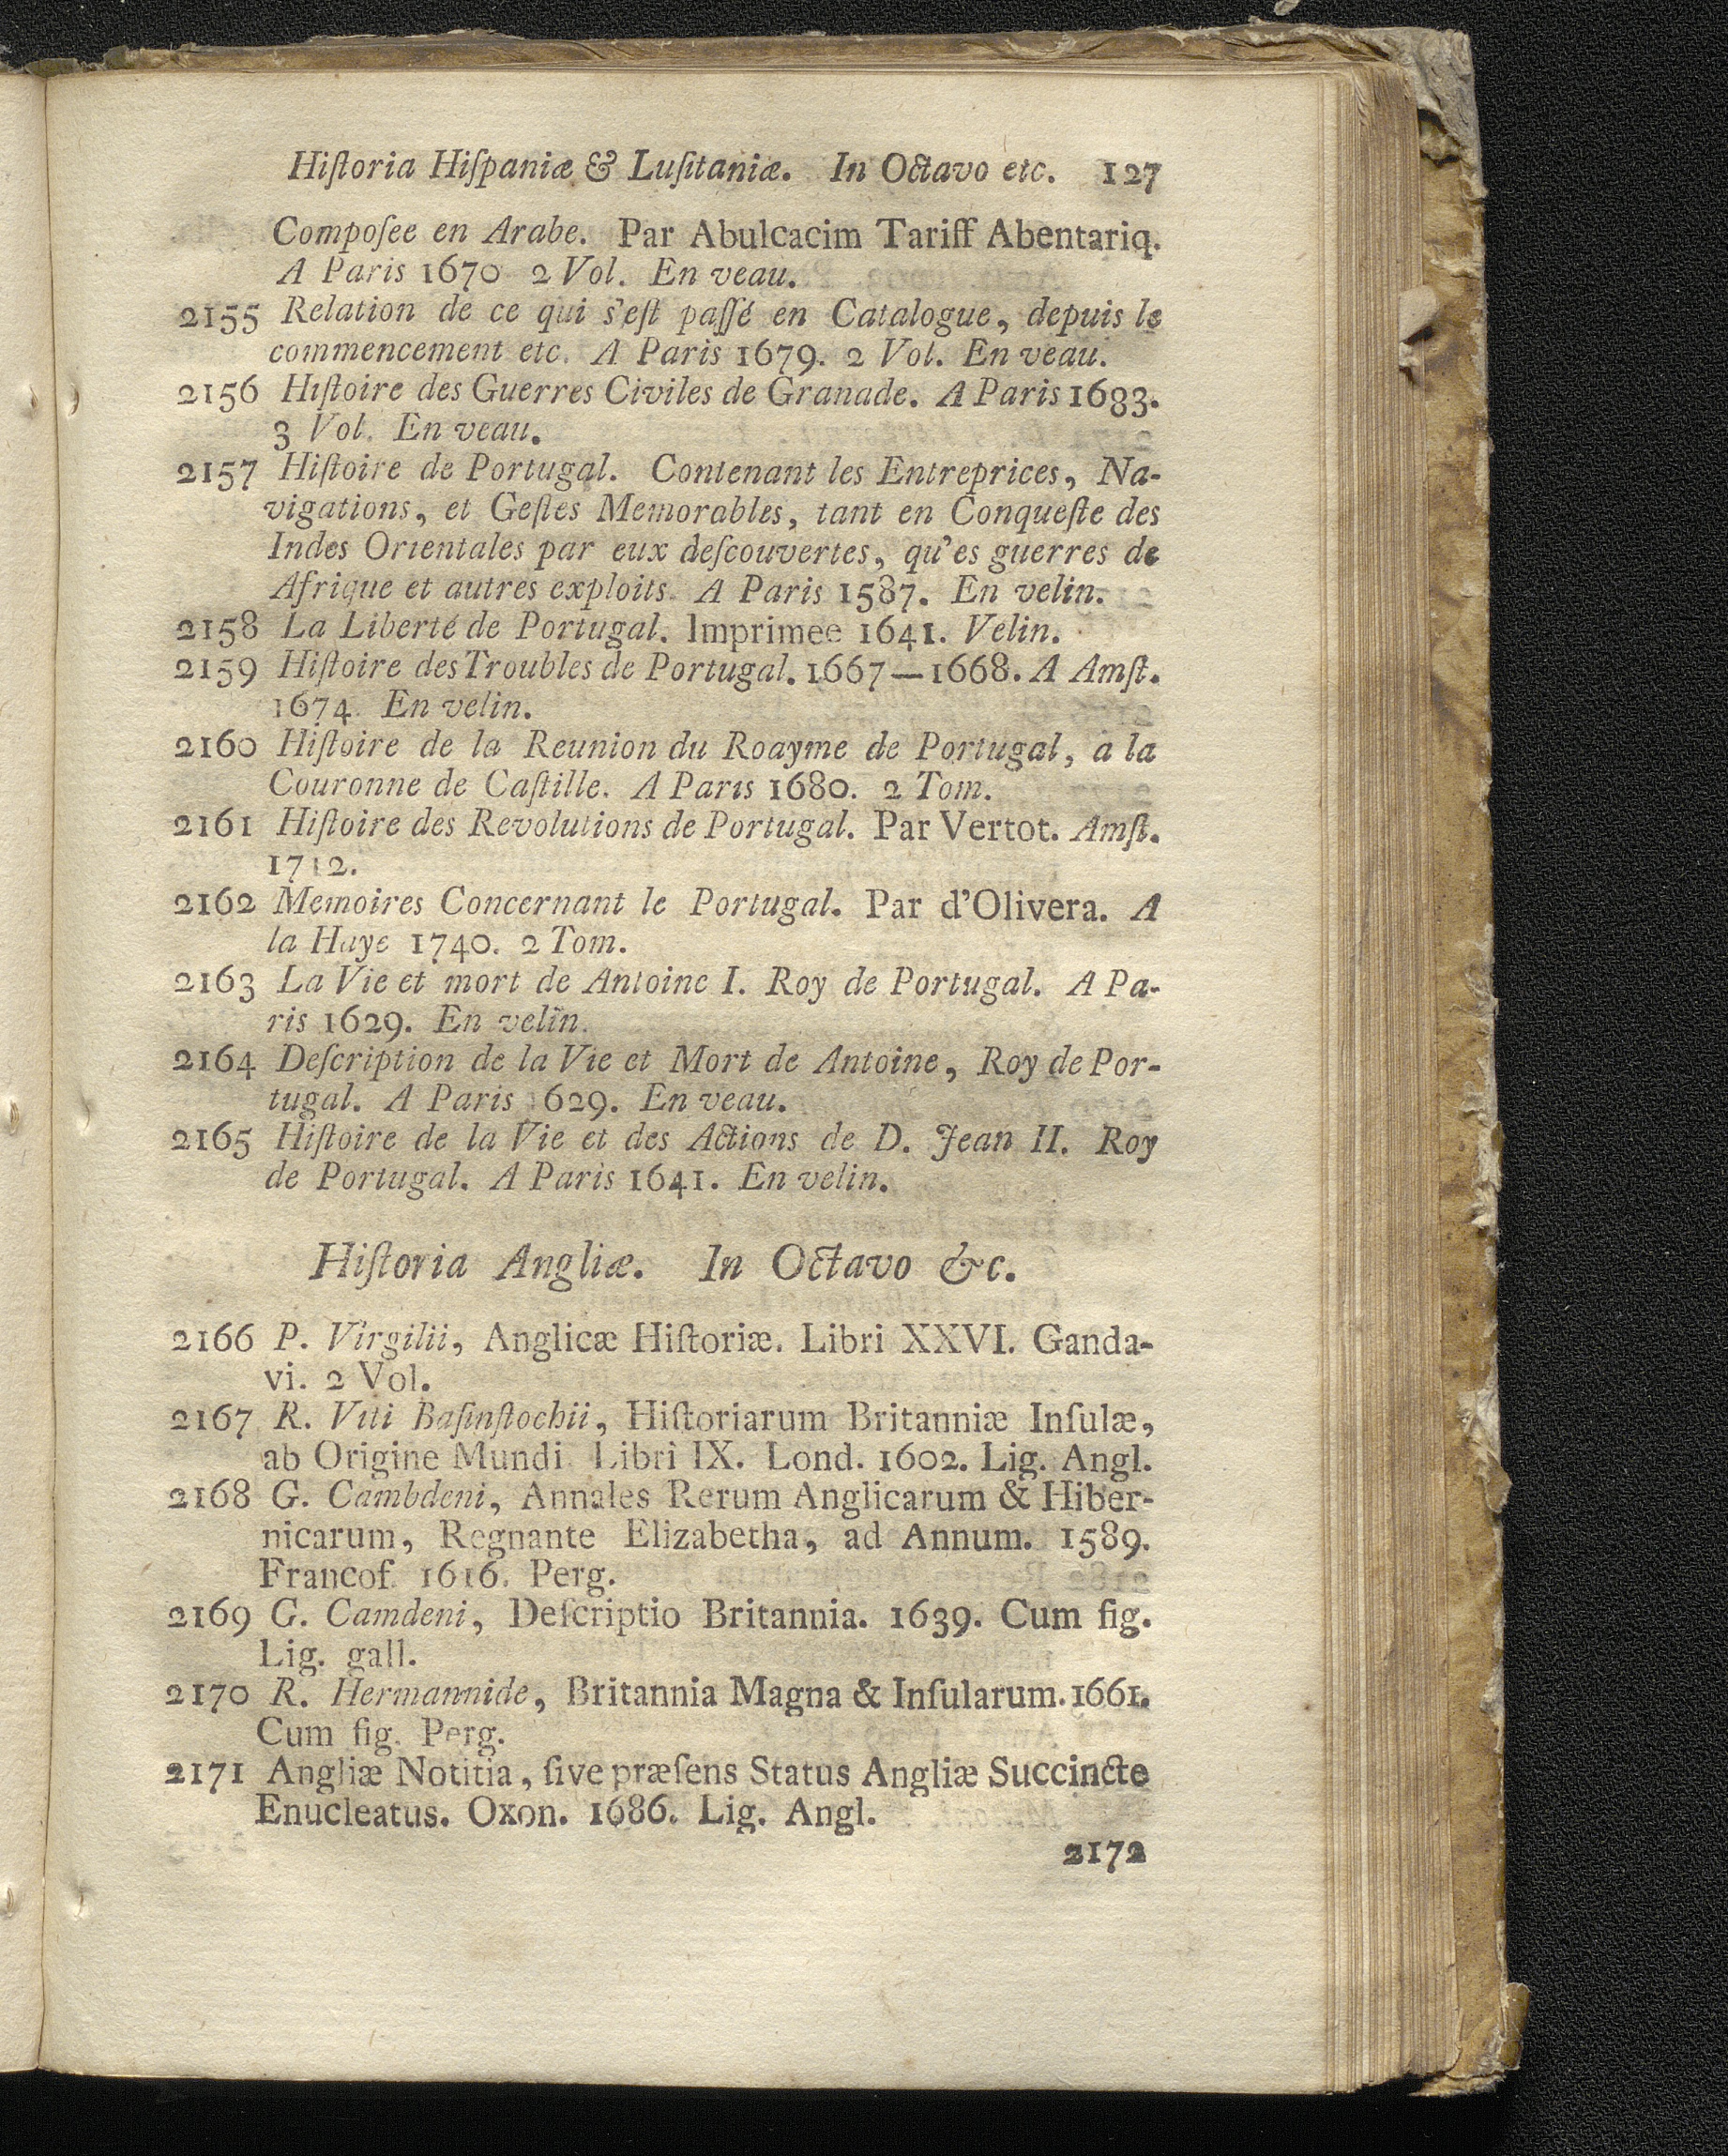 Hiſtoria Hiſpaniæ & Luſitaniæ. In Octavo etc. 127
Compoſee en Arabe. Par Abulcacim Tariff Abentariq.
A Paris 1670 2 Vol. En veau.
2155 Relation de ce qui s'eſt paſſé en Catalogue, depuis le
commencement etc. A Paris 1679. 2 Vol. En veau.
2156 Hiſtoire des Guerres Civiles de Granade. A Paris 1683.
3 Vol. En veau.
2157 Hiſtoire de Portugal. Contenant les Entreprices, Na-
vigations, et Geſtes Memorables, tant en Conqueſte des
Indes Orientales par eux deſcouvertes, qu'es guerres de
Afrique et autres exploits. A Paris 1587. En velin.
2158 La Liberté de Portugal. Imprimee 1641. Velin.
2159 Hiſtoire des Troubles de Portugal. 1667—1668. A Amſt.
1674. En velin.
2160 Hiſtoire de la Reunion du Roayme de Portugal, a la
Couronne de Caſtille. A Paris 1680. 2 Tom.
2161 Hiſtoire des Revolutions de Portugal. Par Vertot. Amſt.
1712.
2162 Memoires Concernant le Portugal. Par d'Olivera. A
la Haye 1740. 2 Tom.
2163 La Vie et mort de Antoine I. Roy de Portugal. A Pa-
ris 1629. En velin.
2164 Deſcription de la Vie et Mort de Antoine, Roy de Por-
tugal. A Paris 1629. En veau.
2165 Hiſtoire de la Vie et des Actions de D. Jean II. Roy
de Portugal. A Paris 1641. En velin.
Hiſtoria Angliæ. In Octavo &c.
2166 P. Virgilii, Anglicæ Hiſtoriæ. Libri XXVI. Ganda-
vi. 2 Vol.
2167 R. Viti Baſinſtochii, Hiſtoriarum Britanniæ Inſulæ,
ab Origine Mundi Libri IX. Lond. 1602. Lig. Angl.
2168 G. Cambdeni, Annales Rerum Anglicarum & Hiber-
nicarum, Regnante Elizabetha, ad Annum. 1589.
Francof. 1616. Perg.
2169 G. Camdeni, Deſcriptio Britannia. 1639. Cum fig.
Lig. gall.
2170 R. Hermannide, Britannia Magna & Inſularum. 1661.
Cum fig. Perg.
2171 Angliæ Notitia, ſive præſens Status Angliæ Succincte
Enucleatus. Oxon. 1686. Lig. Angl.
2172